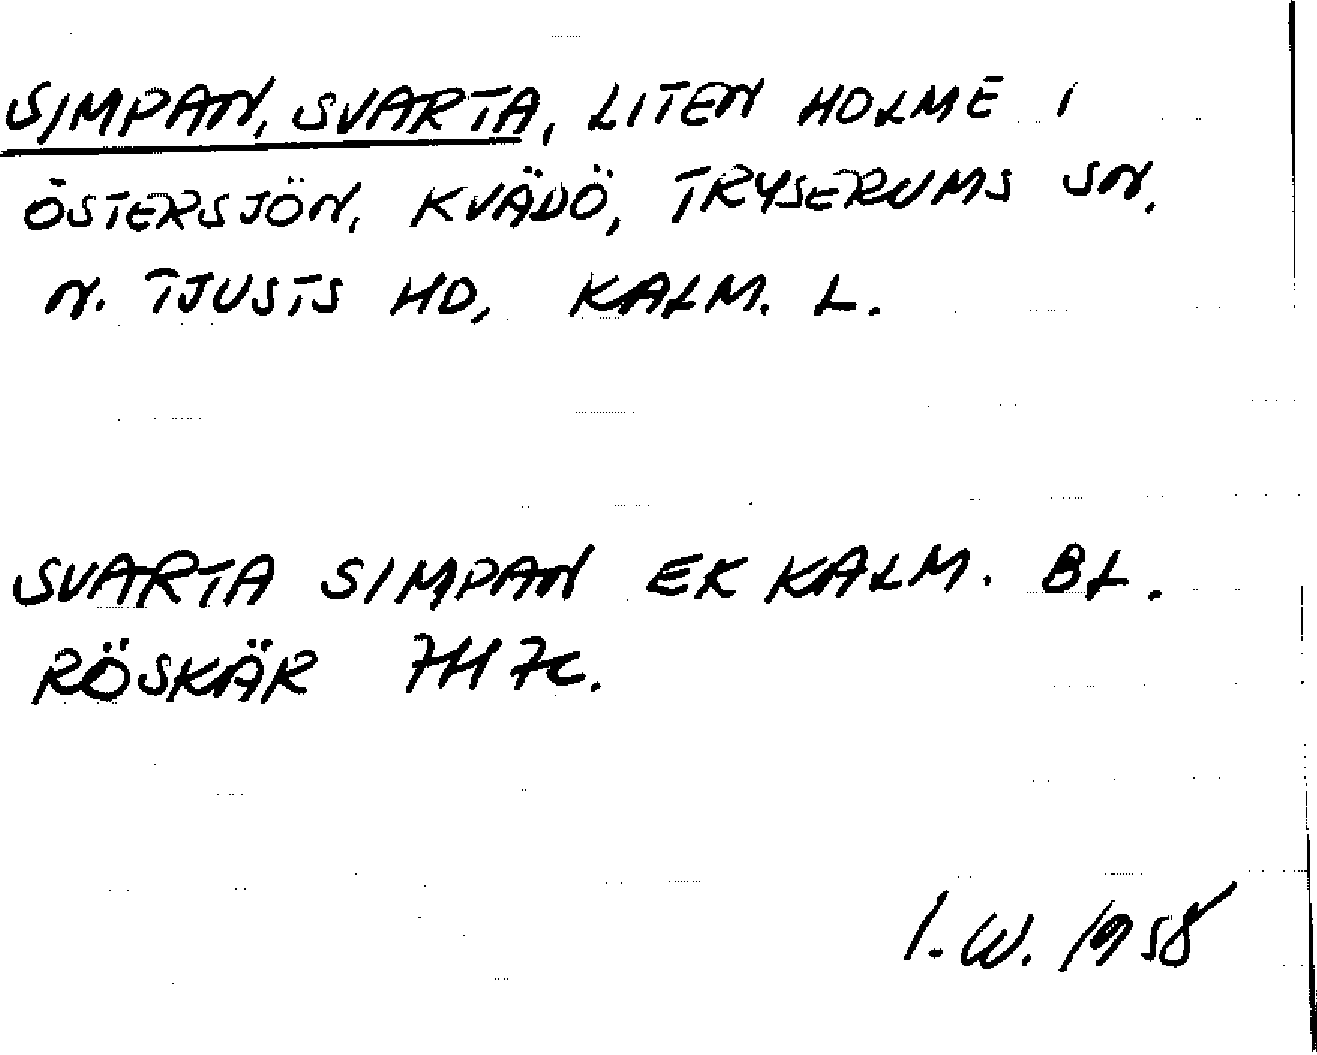 SIMPAN, SVARTA, LITEN HOLME I
ÖSTERSJÖN, KVÄDÖ, TRYSERUMS SN,
N. TJUSTS HD, KALM. L.
SVARTA SIMPAN EK KALM. BL.
RÖSKÄR 7H7c.
I.W. 1958